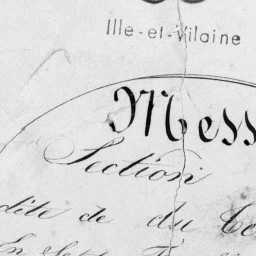 Ille-et-Vilaine
Mess
Section
dite de du Co
En